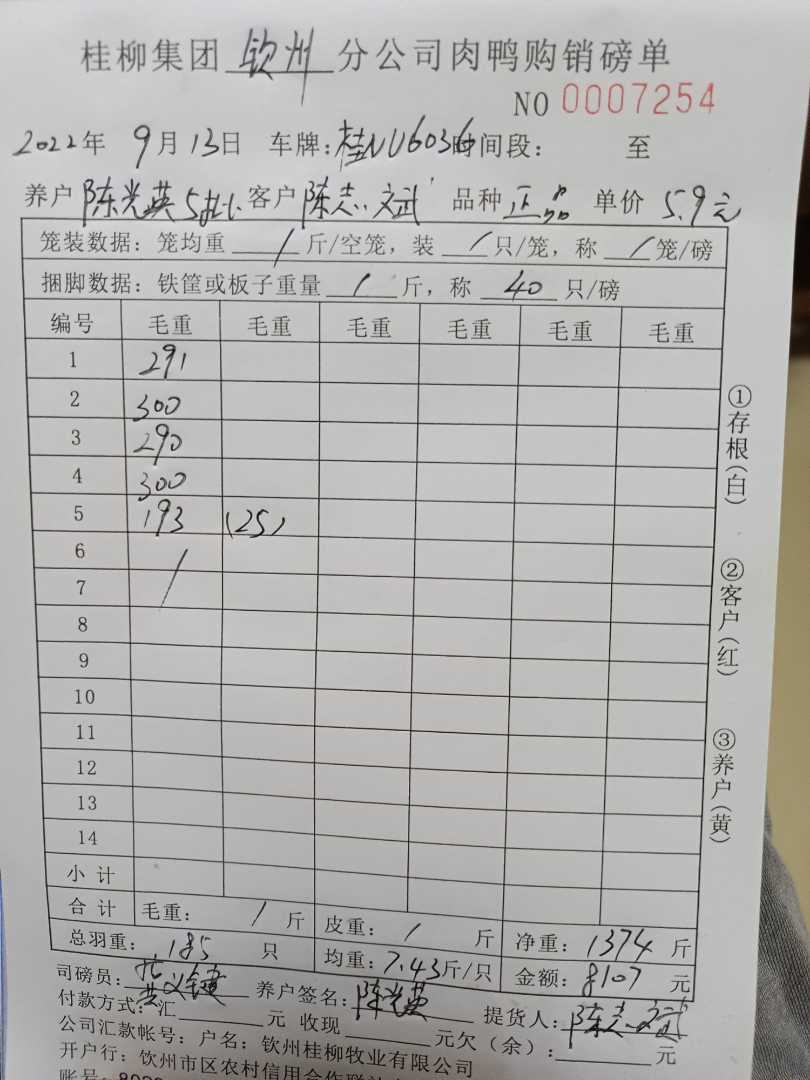 桂柳集团 钦州 分公司肉鸭购销磅单
NO 0007254
2022年 9月13日 车牌：桂NU6036 时间段： 至
养户 陈光英5批 客户 陈志文武 品种 正品 单价 5.9元
笼装数据：笼均重 / 斤/空笼，装 / 只/笼，称 / 笼/磅
捆脚数据：铁筐或板子重量 / 斤，称 40 只/磅
编号 毛重 毛重 毛重 毛重 毛重 毛重
1 291
2 300
3 290
4 300
5 193 (25)
6 /
7
8
9
10
11
12
13
14
小计
合计 毛重： / 斤 皮重： / 斤 净重：1374 斤
总羽重： 185 只 均重：7.43斤/只 金额：8107 元
司磅员： 养户签名：陈光英 提货人：陈志文武
付款方式：汇 元 收现 元欠（余）： 元
公司汇款帐号：户名：钦州桂柳牧业有限公司
开户行：钦州市区农村信用合作联社
账号：
①存根（白）
②客户（红）
③养户（黄）